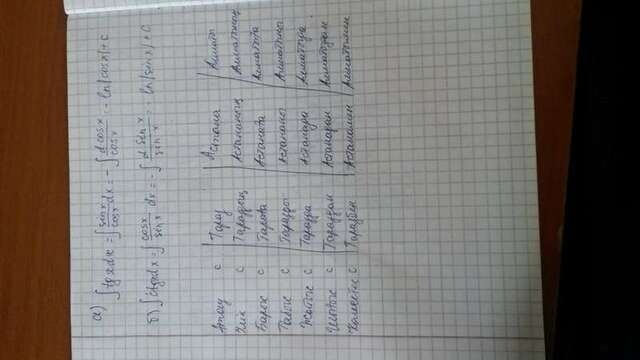 а)
∫tgxdx = ∫ sinx/cosx dx = - ∫ d cosx/cosx = - ln|cosx| + c
б) ∫ctgxdx = ∫ cosx/sinx dx = - ∫ d sinx/sin x = - ln|sinx| + C
Атау с Тараз Астана Алматы
Ілік с Тараздың Астананың Алматының
Барыс с Таразға Астанаға Алматыға
Табыс с Таразды Астананы Алматыны
Жатыс с Таразда Астанада Алматыда
Шығыс с Тараздан Астанадан Алматыдан
Көмектес с Тараз­бен Астанамен Алматымен